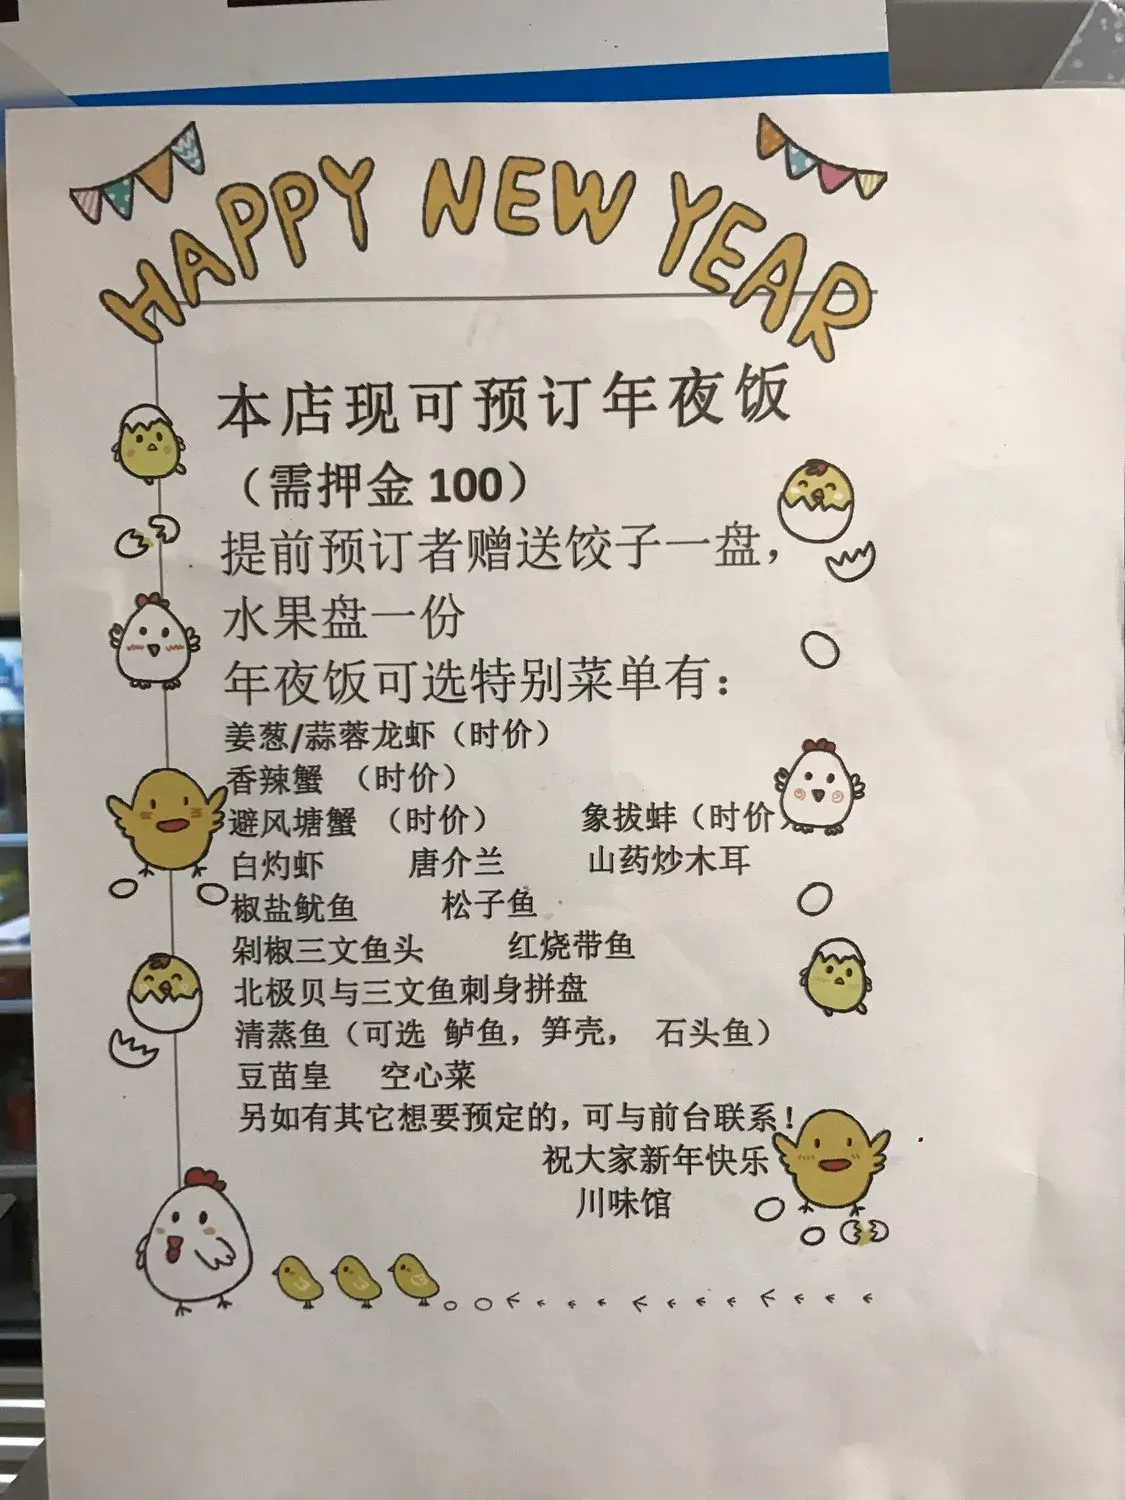 HAPPY NEW YEAR
本店现可预订年夜饭
（需押金 100）
提前预订者赠送饺子一盘，
水果盘一份
年夜饭可选特别菜单有：
姜葱/蒜蓉龙虾（时价）
香辣蟹 （时价）
避风塘蟹 （时价） 象拔蚌（时价）
白灼虾 唐介兰 山药炒木耳
椒盐鱿鱼 松子鱼
剁椒三文鱼头 红烧带鱼
北极贝与三文鱼刺身拼盘
清蒸鱼（可选 鲈鱼，笋壳， 石头鱼）
豆苗皇 空心菜
另如有其它想要预定的，可与前台联系！
祝大家新年快乐
川味馆